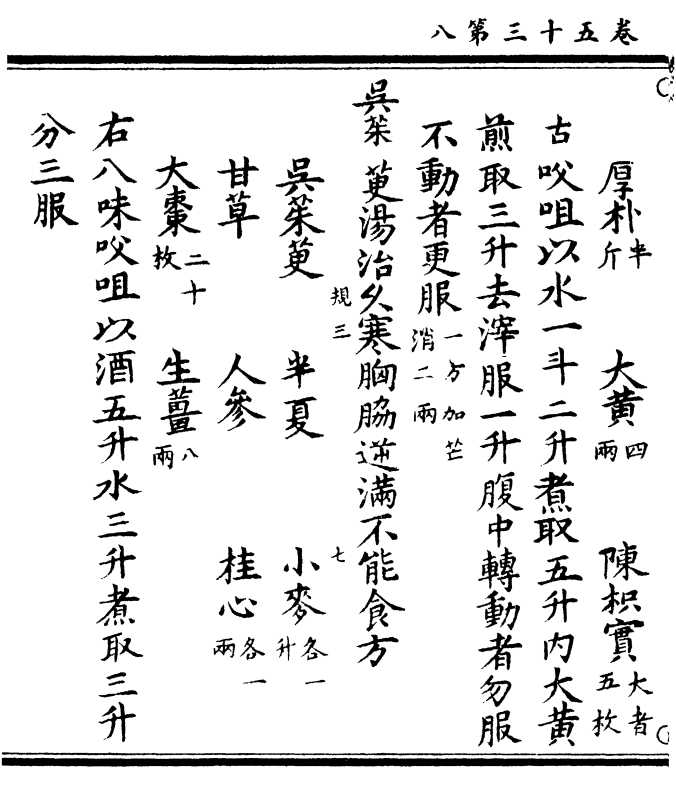 卷五十三第八
厚朴半斤 大黃四兩 陳枳實大者五枚
古㕮咀以水一斗二升煮取五升内大黃
煎取三升去滓服一升腹中轉動者勿服
不動者更服一方加芒消二兩
吳茱萸湯治久寒胸脇逆滿不能食方
規三 七
吳茱萸 半夏 小麥各一升
甘草 人參 桂心各一兩
大棗二十枚 生薑八兩
右八味㕮咀以酒五升水三升煮取三升
分三服